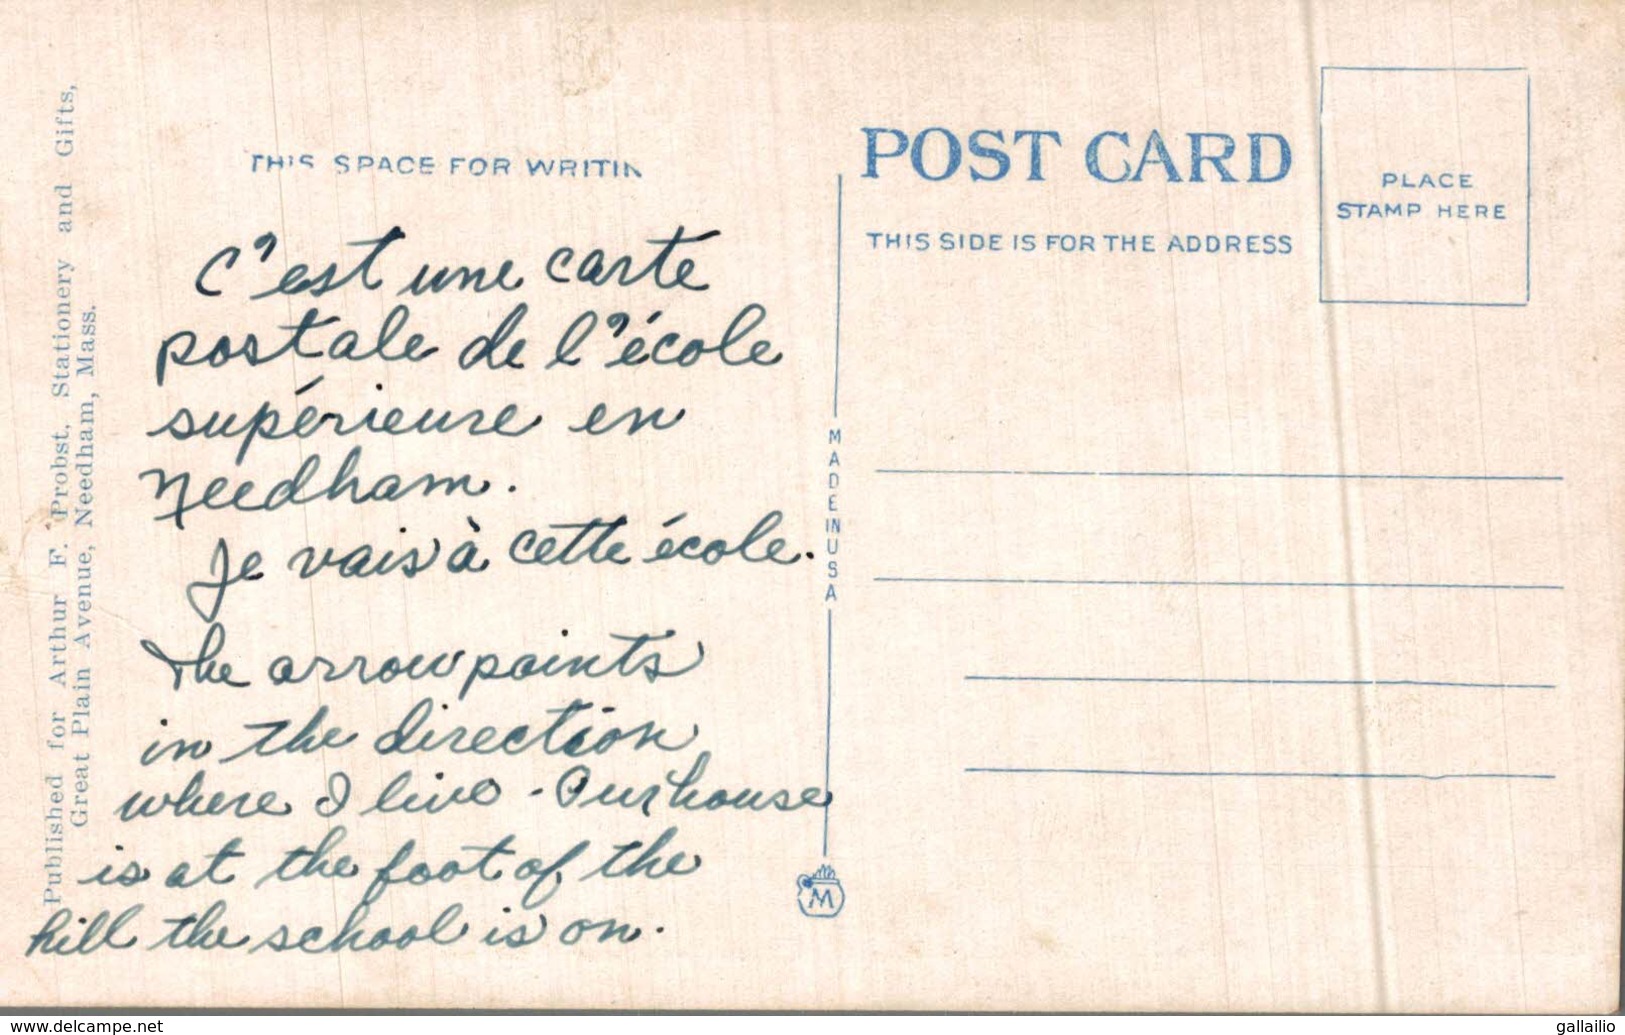 Published for Arthur F. Probst, Stationery and Gifts,
Great Plain Avenue, Needham, Mass.
THIS SPACE FOR WRITIN
C'est une carte
postale de l'école
supérieure en
Needham.
Je vais à cette école.
The arrow points
in the direction
where I live - Our house
is at the foot of the
hill the school is on.
MADE IN USA
M
POST CARD
THIS SIDE IS FOR THE ADDRESS
PLACE
STAMP HERE
www.delcampe.net
gallailio